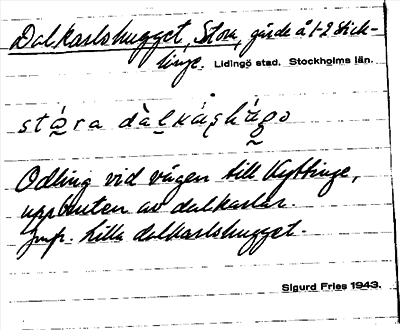 Dalkarlshugget, Stora, gärde å 1-2 Stick-
linge. Lidingö stad. Stockholms län.
stóra dàlkáșhágo
Odling vid vägen till Kyttinge,
uppbruten av dalkarlar.
Jmfr. Lilla dalkarlshugget.
Sigurd Fries 1943.